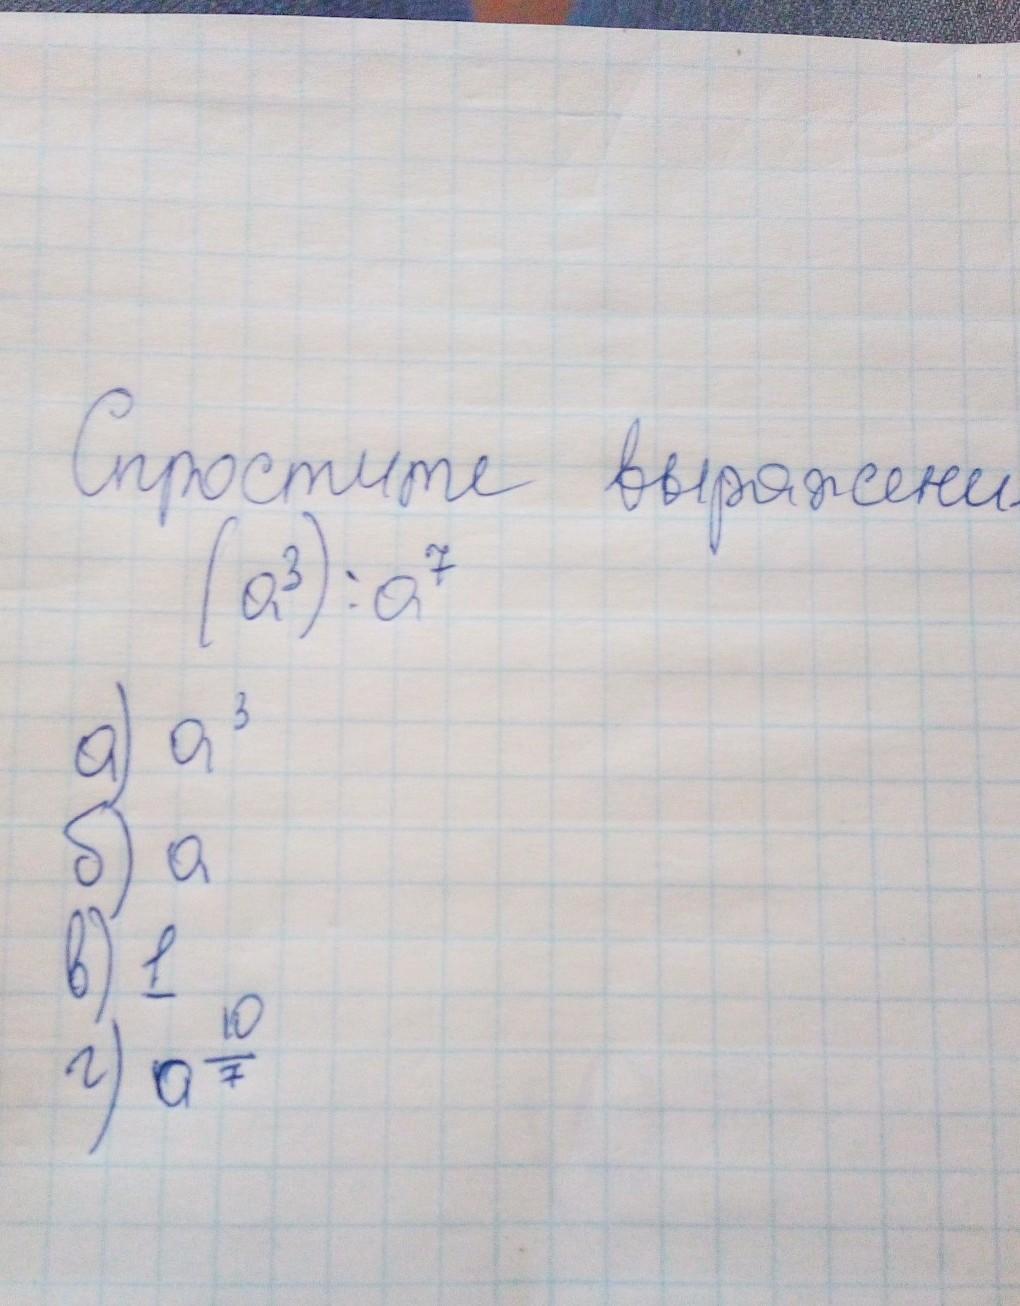 Спростите выражени
(a³):a⁷
а) a³
б) a
в) 1
г) a^(10/7)